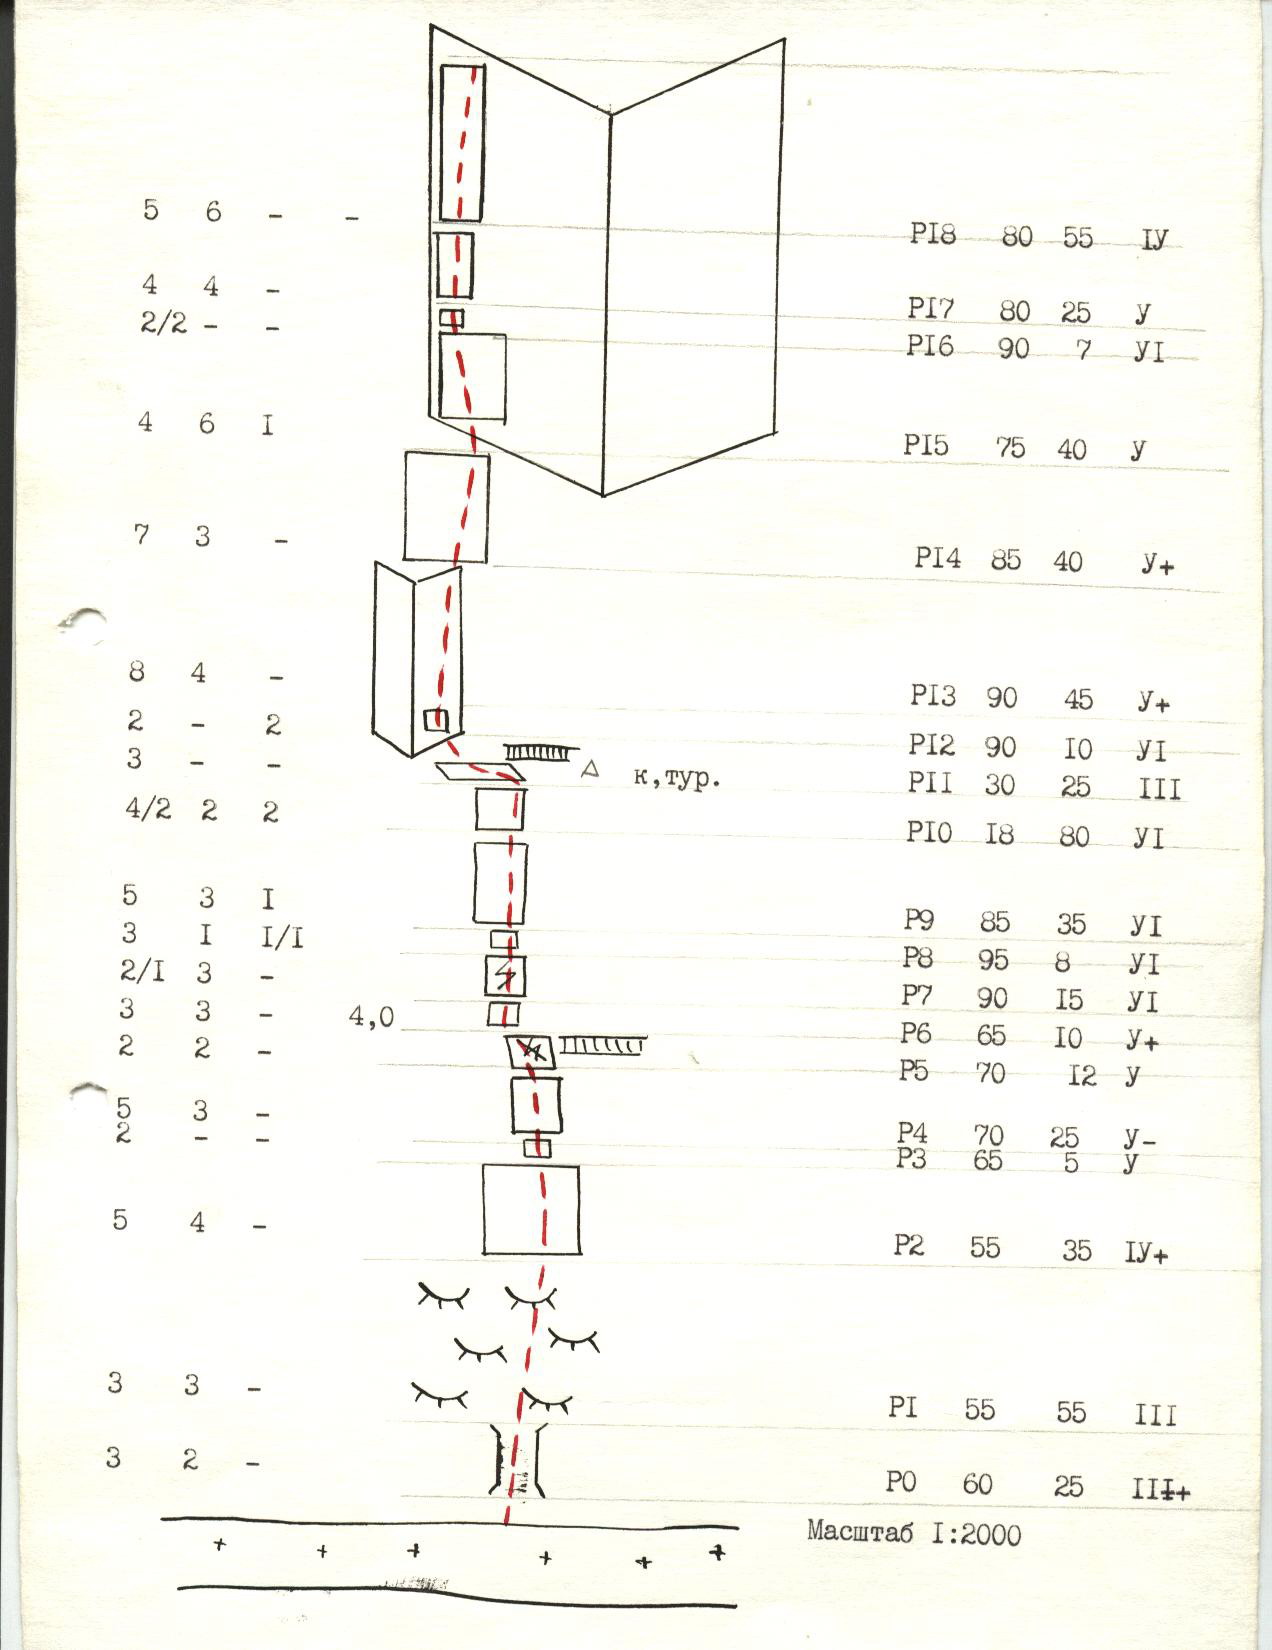 5 6 - -
PI8 80 55 IУ
4 4 -
PI7 80 25 У
2/2 - -
PI6 90 7 УI
4 6 I
PI5 75 40 У
7 3 -
PI4 85 40 У+
8 4 -
PI3 90 45 У+
2 - 2
PI2 90 IO УI
3 - -
к,тур.
PII 30 25 III
4/2 2 2
PIO I8 80 УI
5 3 I
P9 85 35 УI
3 I I/I
P8 95 8 УI
2/I 3 -
P7 90 I5 УI
3 3 - 4,0
P6 65 IO У+
2 2 -
P5 70 I2 У
5 3 -
P4 70 25 У-
2 - -
P3 65 5 У
5 4 -
P2 55 35 IУ+
3 3 -
PI 55 55 III
3 2 -
PO 60 25 III+
Масштаб I:2000